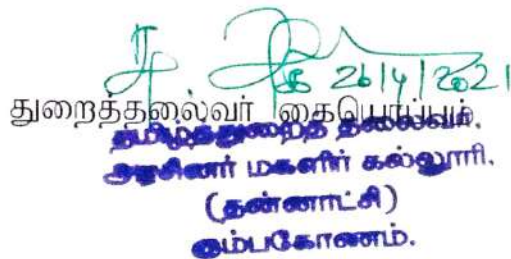 26/4/2021
துறைத்தலைவர் கையொப்பம்
தமிழ்த்துறைத் தலைவர்.
அரசினர் மகளிர் கல்லூரி.
(தன்னாட்சி)
கும்பகோணம்.